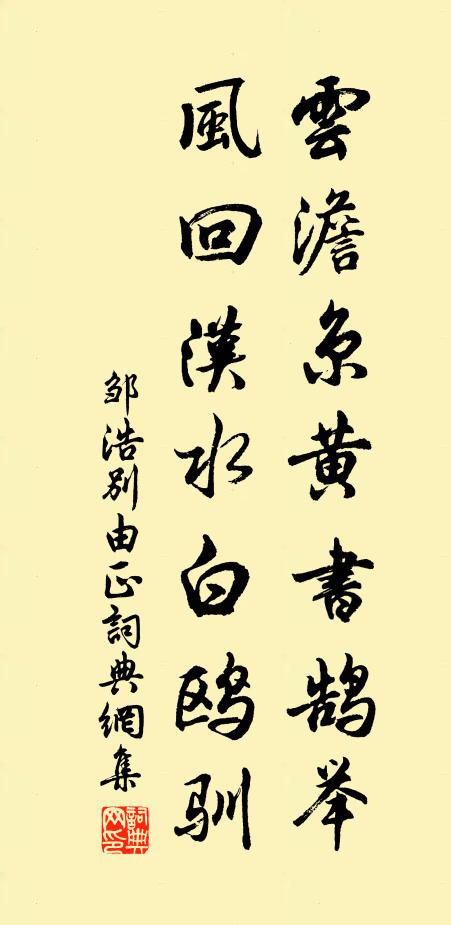 雲澹京黄書鵠举
風回漢水白鷗馴
邹浩別由正詞典網集
詞典网印